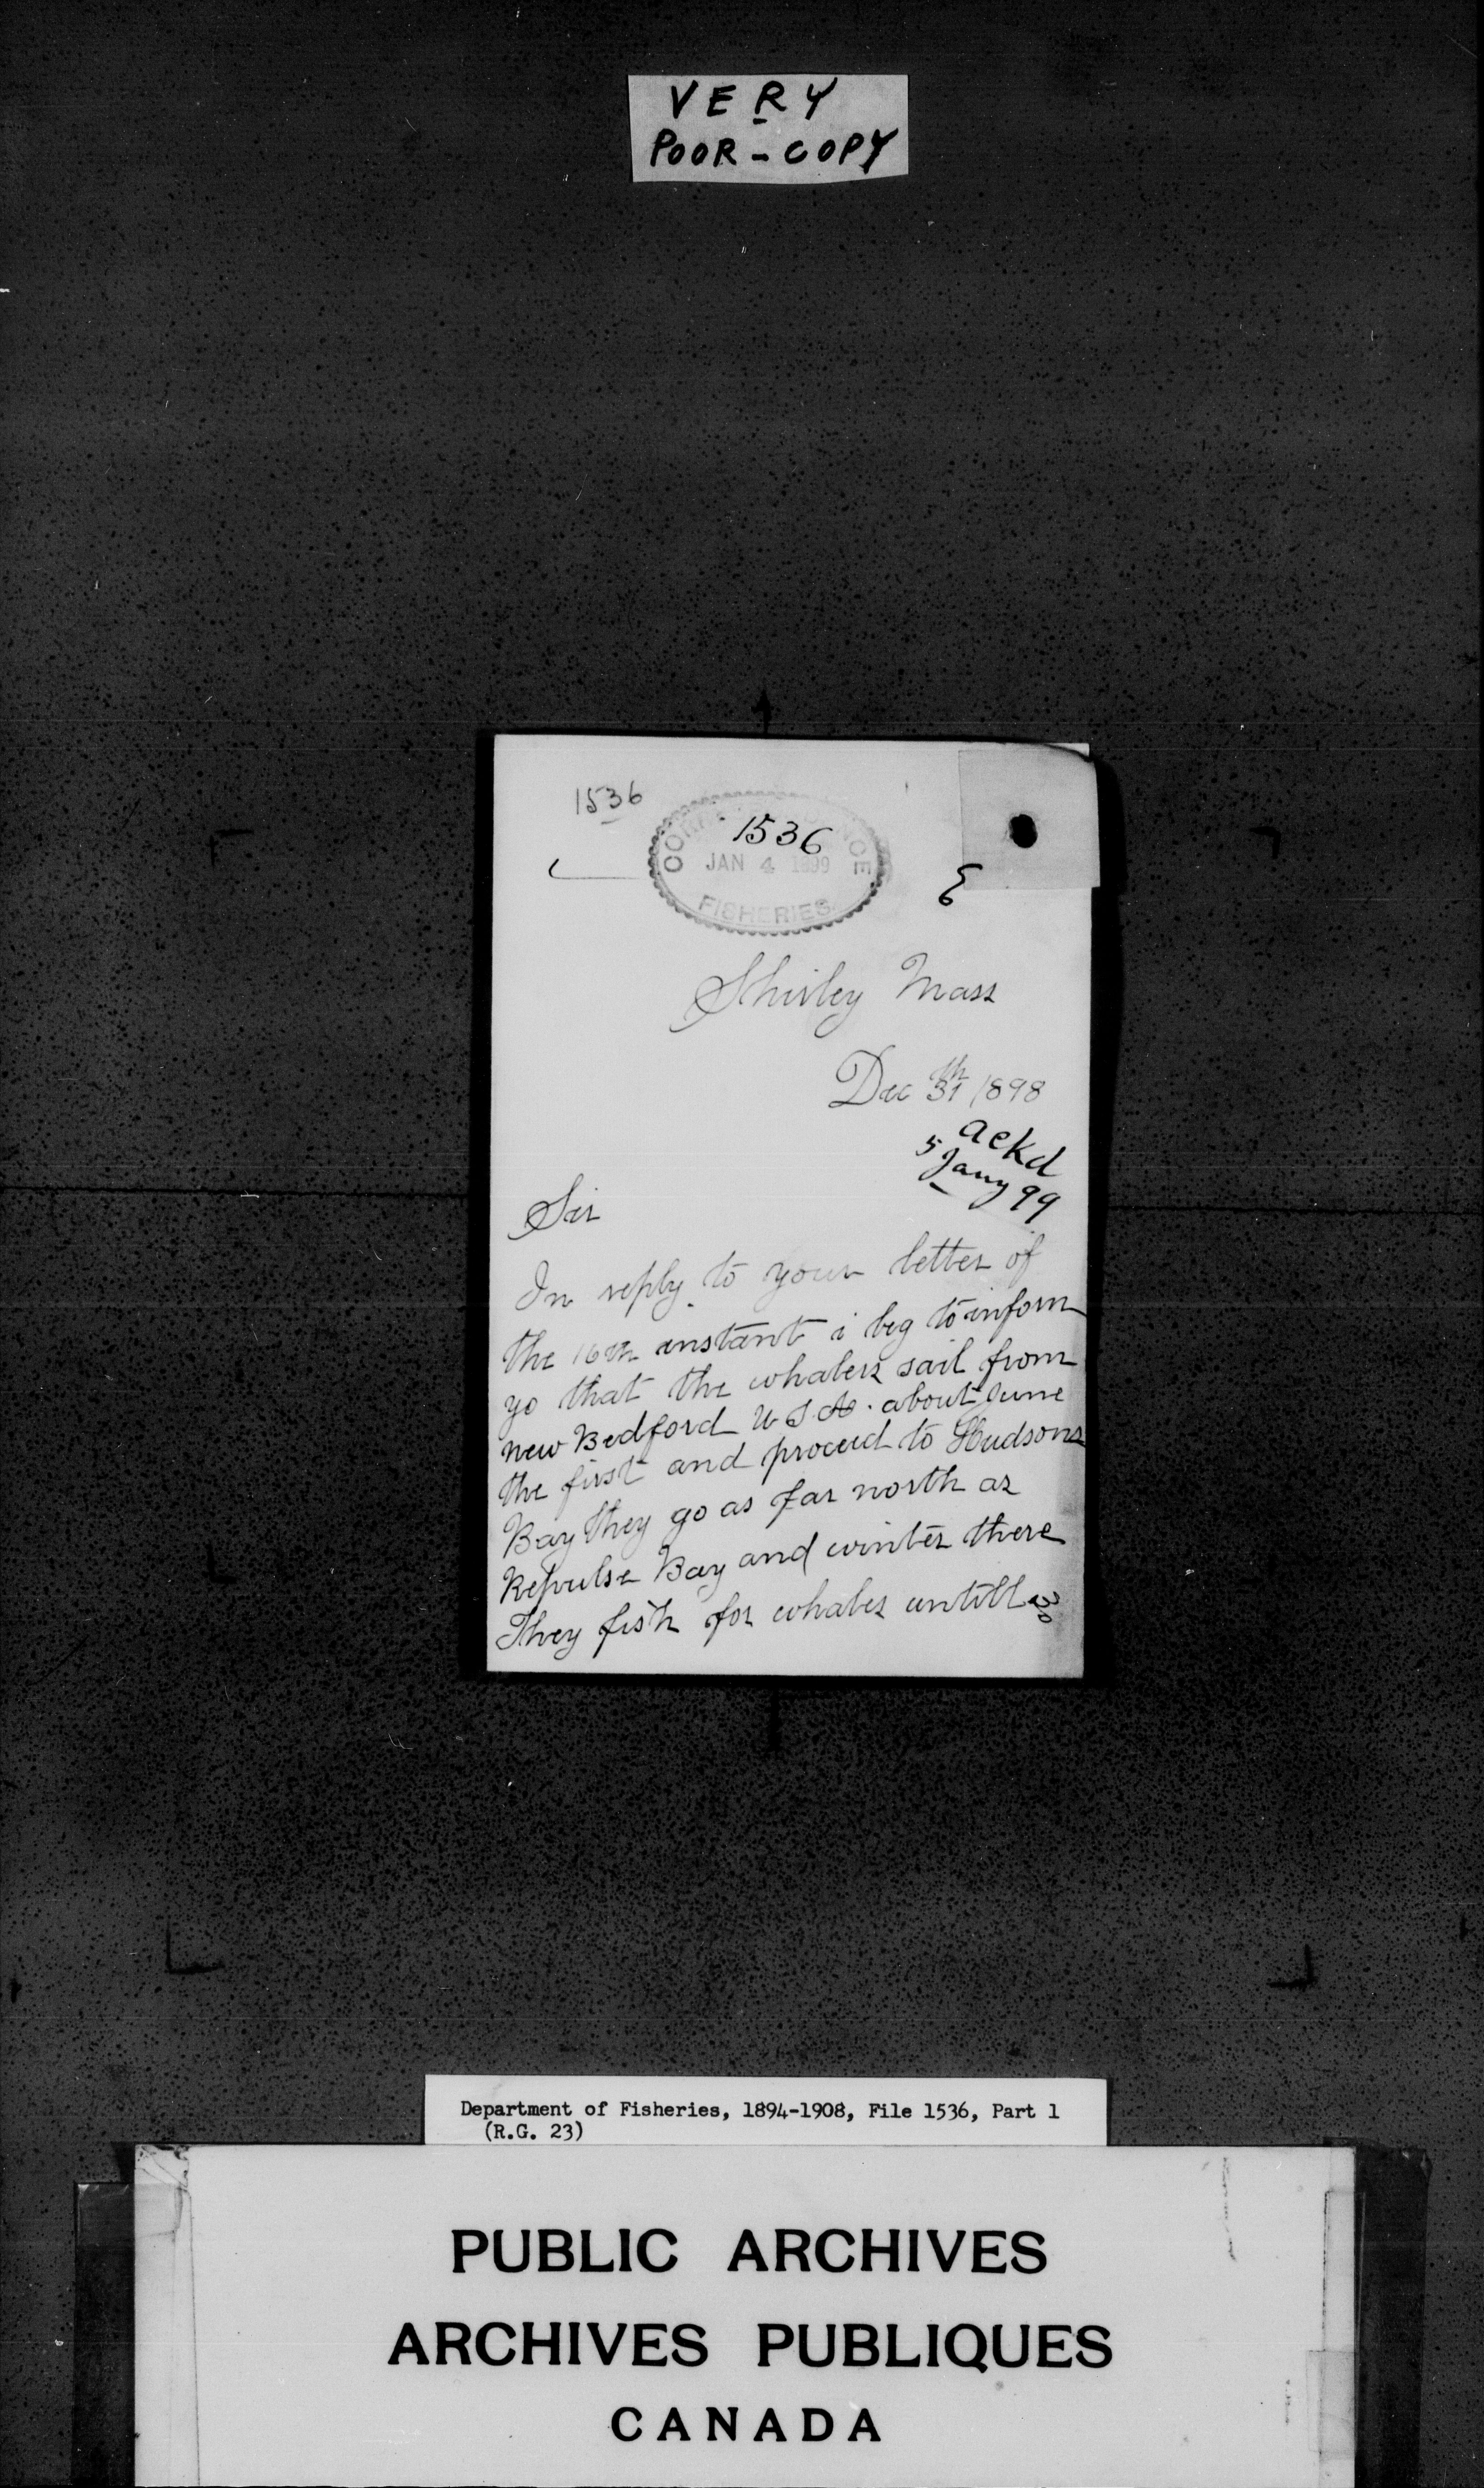 VERY
POOR - COPY
1536
1536
JAN 4 1899
FISHERIES
Shirley Mass
Dec 31th 1898
ackd
5 Jany 99
Sir
In reply to your letter of
the 16th instant i beg to inform
yo that the whalers sail from
new Bedford U S A. about June
the first and proceed to Hudsons
Bay they go as far north as
Repulse Bay and winter there
They fish for whales untill
Department of Fisheries, 1894-1908, File 1536, Part 1
(R.G. 23)
PUBLIC ARCHIVES
ARCHIVES PUBLIQUES
CANADA